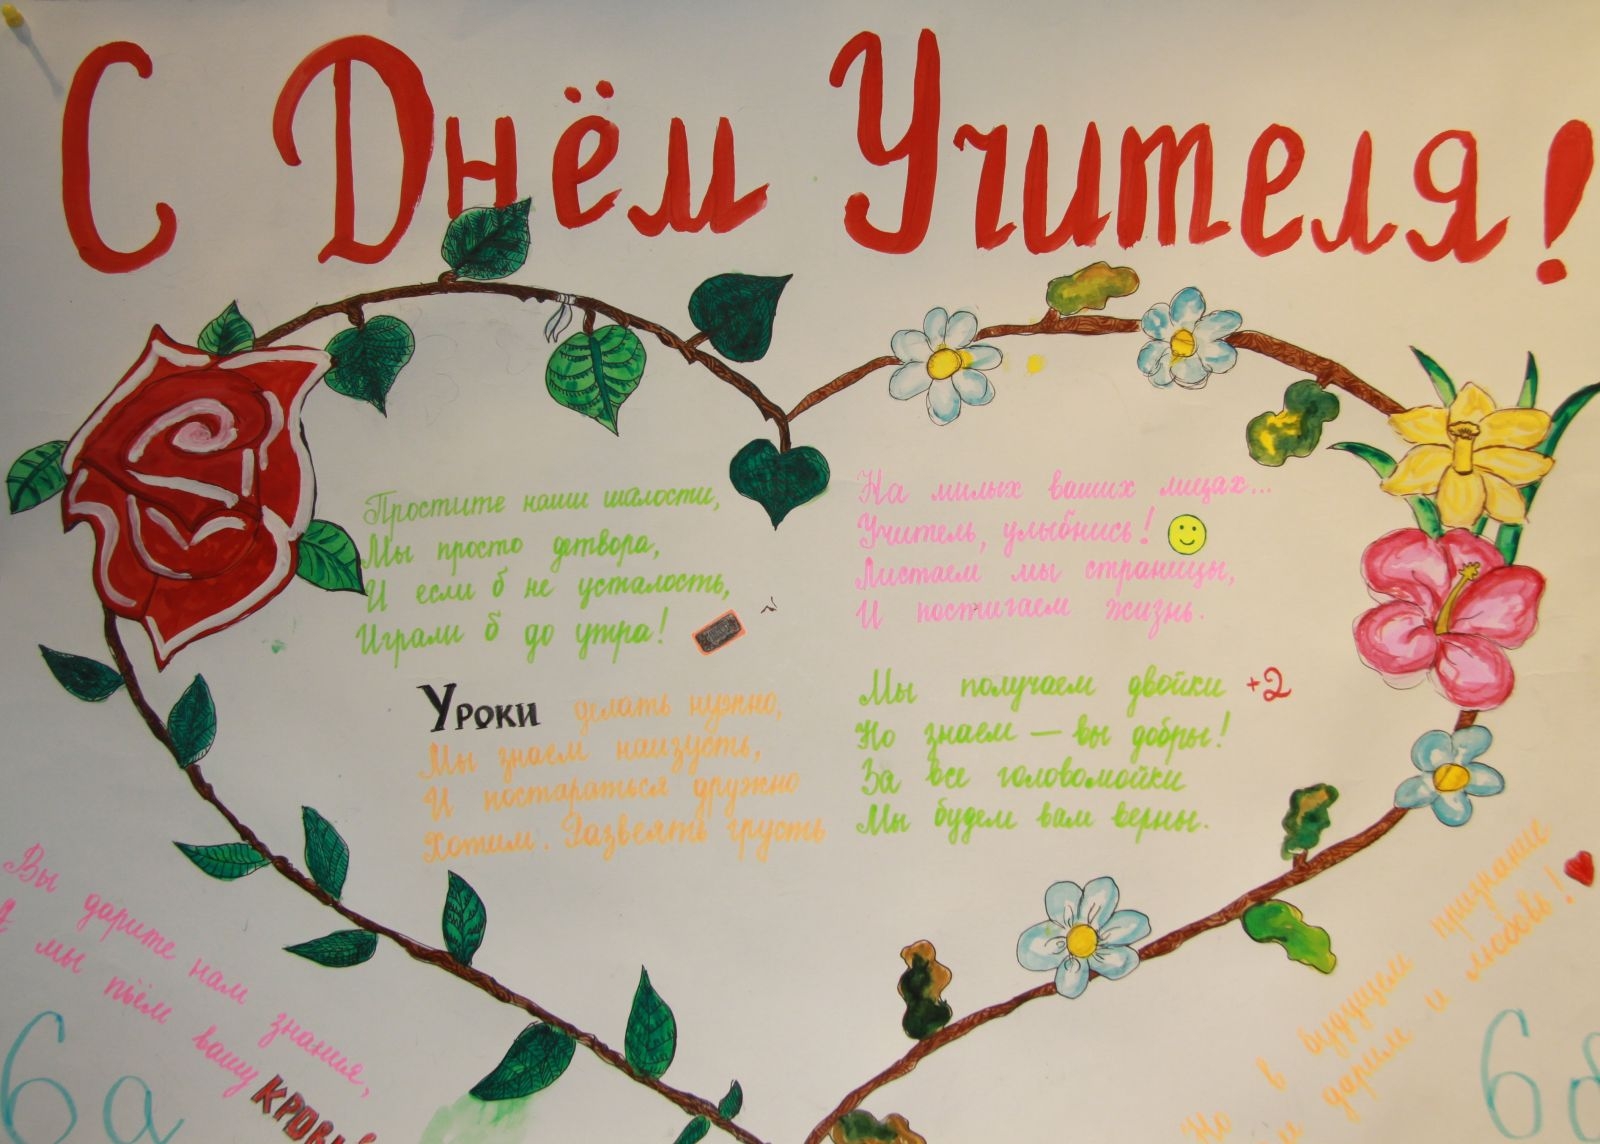 С Днём Учителя!
Простите наши шалости,
Мы просто детвора,
И если б не усталость,
Играли б до утра!
Уроки делать нужно,
Мы знаем наизусть,
И постараться дружно
Хотим. Развеять грусть
На милых ваших лицах...
Учитель, улыбнись!
Листаем мы страницы,
И постигаем жизнь.
Мы получаем двойки +2
Но знаем — вы добры!
За все головомойки
Мы будем вам верны.
Вы дарите нам знания,
А мы пьём вашу кровь
Но в будущем признание
дарим и любовь!
6а
6б